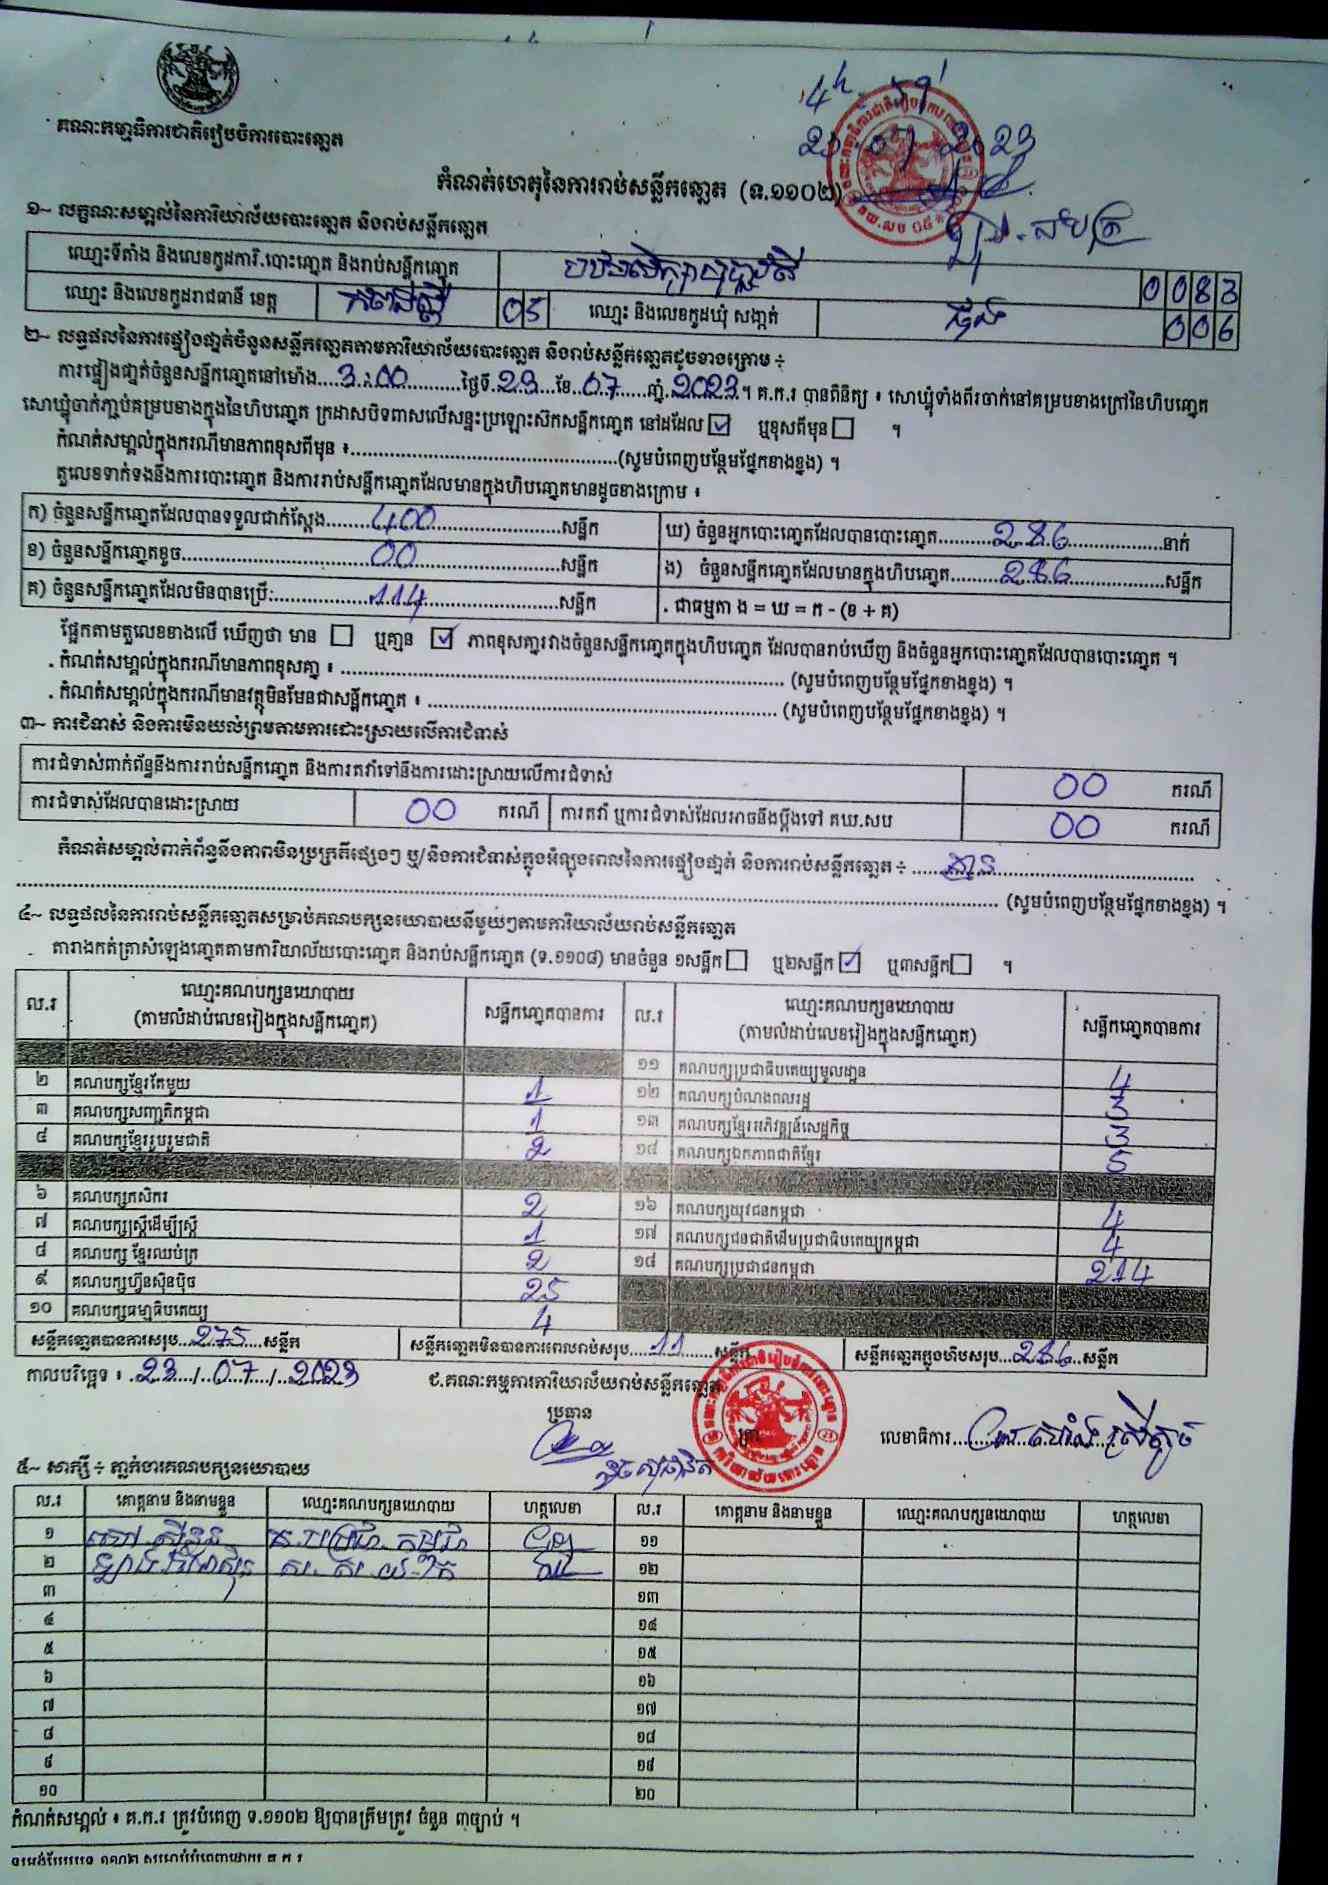 គណៈកម្មាធិការជាតិរៀបចំការបោះឆ្នោត
កំណត់ហេតុនៃការរាប់សន្លឹកឆ្នោត (ទ.១១០២)
១~ លក្ខណៈសម្គាល់នៃការិយាល័យបោះឆ្នោត និងរាប់សន្លឹកឆ្នោត
ឈ្មោះទីតាំង និងលេខកូដការិ.បោះឆ្នោត និងរាប់សន្លឹកឆ្នោត 0083
ឈ្មោះ និងលេខកូដរាជធានី ខេត្ត កំពង់ស្ពឺ 05 ឈ្មោះ និងលេខកូដឃុំ សង្កាត់ 006
២~ លទ្ធផលនៃការផ្ទៀងផ្ទាត់ចំនួនសន្លឹកឆ្នោតតាមការិយាល័យបោះឆ្នោត និងរាប់សន្លឹកឆ្នោតដូចខាងក្រោម ÷
ការផ្ទៀងផ្ទាត់ចំនួនសន្លឹកឆ្នោតនៅម៉ោង....3:00..........ថ្ងៃទី.23...ខែ..07......ឆ្នាំ.2023.។ គ.ក.រ បានពិនិត្យ ៖ សោឃ្លុំទាំងពីរចាក់នៅគម្របខាងក្រៅនៃហិបឆ្នោត
សោឃ្លុំចាក់ភ្ជាប់គម្របខាងក្នុងនៃហិបឆ្នោត ក្រដាសបិទពាសលើសន្ទះប្រឡោះស៊កសន្លឹកឆ្នោត នៅដដែល ☑ ឬខុសពីមុន ☐ ។
កំណត់សម្គាល់ក្នុងករណីមានភាពខុសពីមុន ៖..................(សូមបំពេញបន្ថែមផ្នែកខាងខ្នង) ។
តួលេខទាក់ទងនឹងការបោះឆ្នោត និងការរាប់សន្លឹកឆ្នោតដែលមានក្នុងហិបឆ្នោតមានដូចខាងក្រោម ៖
ក) ចំនួនសន្លឹកឆ្នោតដែលបានទទួលជាក់ស្តែង........400..........សន្លឹក ឃ) ចំនួនអ្នកបោះឆ្នោតដែលបានបោះឆ្នោត..........286..........នាក់
ខ) ចំនួនសន្លឹកឆ្នោតខូច..........00..........សន្លឹក ង) ចំនួនសន្លឹកឆ្នោតដែលមានក្នុងហិបឆ្នោត..........286..........សន្លឹក
គ) ចំនួនសន្លឹកឆ្នោតដែលមិនបានប្រើ:..........114..........សន្លឹក . ជាធម្មតា ង = ឃ = ក - (ខ + គ)
ផ្អែកតាមតួលេខខាងលើ ឃើញថា មាន ☐ ឬគ្មាន ☑ ភាពខុសគ្នារវាងចំនួនសន្លឹកឆ្នោតក្នុងហិបឆ្នោត ដែលបានរាប់ឃើញ និងចំនួនអ្នកបោះឆ្នោតដែលបានបោះឆ្នោត ។
. កំណត់សម្គាល់ក្នុងករណីមានភាពខុសគ្នា ៖ .................. (សូមបំពេញបន្ថែមផ្នែកខាងខ្នង) ។
. កំណត់សម្គាល់ក្នុងករណីមានវត្ថុមិនមែនជាសន្លឹកឆ្នោត ៖ .................. (សូមបំពេញបន្ថែមផ្នែកខាងខ្នង) ។
៣~ ការជំទាស់ និងការមិនយល់ព្រមតាមការដោះស្រាយលើការជំទាស់
ការជំទាស់ពាក់ព័ន្ធនឹងការរាប់សន្លឹកឆ្នោត និងការតវ៉ាទៅនឹងការដោះស្រាយលើការជំទាស់ 00 ករណី
ការជំទាស់ដែលបានដោះស្រាយ 00 ករណី ការតវ៉ា ឬការជំទាស់ដែលអាចនឹងប្តឹងទៅ គឃ.សប 00 ករណី
កំណត់សម្គាល់ពាក់ព័ន្ធនឹងភាពមិនប្រក្រតីផ្សេងៗ ឬ/និងការជំទាស់ក្នុងអំឡុងពេលនៃការផ្ទៀងផ្ទាត់ និងការរាប់សន្លឹកឆ្នោត ÷ ......គ្មាន..........
.................. (សូមបំពេញបន្ថែមផ្នែកខាងខ្នង) ។
៤~ លទ្ធផលនៃការរាប់សន្លឹកឆ្នោតសម្រាប់គណបក្សនយោបាយនីមួយៗតាមការិយាល័យរាប់សន្លឹកឆ្នោត
តារាងកត់ត្រាសំឡេងឆ្នោតតាមការិយាល័យបោះឆ្នោត និងរាប់សន្លឹកឆ្នោត (ទ.១១០៨) មានចំនួន ១សន្លឹក ☐ ឬ២សន្លឹក ☑ ឬ៣សន្លឹក ☐ ។
ល.រ ឈ្មោះគណបក្សនយោបាយ (តាមលំដាប់លេខរៀងក្នុងសន្លឹកឆ្នោត) សន្លឹកឆ្នោតបានការ ល.រ ឈ្មោះគណបក្សនយោបាយ (តាមលំដាប់លេខរៀងក្នុងសន្លឹកឆ្នោត) សន្លឹកឆ្នោតបានការ
១១ គណបក្សប្រជាធិបតេយ្យមូលដ្ឋាន 4
២ គណបក្សខ្មែរតែមួយ 1 ១២ គណបក្សបំណងពលរដ្ឋ 3
៣ គណបក្សសញ្ជាតិកម្ពុជា 1 ១៣ គណបក្សខ្មែរអភិវឌ្ឍន៍សេដ្ឋកិច្ច 3
៤ គណបក្សខ្មែររួបរួមជាតិ 2 ១៤ គណបក្សឯកភាពជាតិខ្មែរ 5
៦ គណបក្សកសិករ 2 ១៦ គណបក្សយុវជនកម្ពុជា 4
៧ គណបក្សស្ត្រីដើម្បីស្ត្រី 1 ១៧ គណបក្សជនជាតិដើមប្រជាធិបតេយ្យកម្ពុជា 4
៨ គណបក្ស ខ្មែរឈប់ក្រ 2 ១៨ គណបក្សប្រជាជនកម្ពុជា 214
៩ គណបក្សហ៊្វុនស៊ិនប៉ិច 25
១០ គណបក្សធម្មាធិបតេយ្យ 4
សន្លឹកឆ្នោតបានការសរុប...275....សន្លឹក សន្លឹកឆ្នោតមិនបានការពេលរាប់សរុប....11......សន្លឹក សន្លឹកឆ្នោតក្នុងហិបសរុប...286...សន្លឹក
កាលបរិច្ឆេទ ៖ .23.../..07.../..2023 ជ.គណៈកម្មការការិយាល័យរាប់សន្លឹកឆ្នោត
ប្រធាន
លេខាធិការ
៥~ សាក្សី ÷ ភ្នាក់ងារគណបក្សនយោបាយ
ល.រ គោត្តនាម និងនាមខ្លួន ឈ្មោះគណបក្សនយោបាយ ហត្ថលេខា ល.រ គោត្តនាម និងនាមខ្លួន ឈ្មោះគណបក្សនយោបាយ ហត្ថលេខា
១ ១១
២ ១២
៣ ១៣
៤ ១៤
៥ ១៥
៦ ១៦
៧ ១៧
៨ ១៨
៩ ១៩
១០ ២០
កំណត់សម្គាល់ ៖ គ.ក.រ ត្រូវបំពេញ ទ.១១០២ ឱ្យបានត្រឹមត្រូវ ចំនួន ៣ច្បាប់ ។